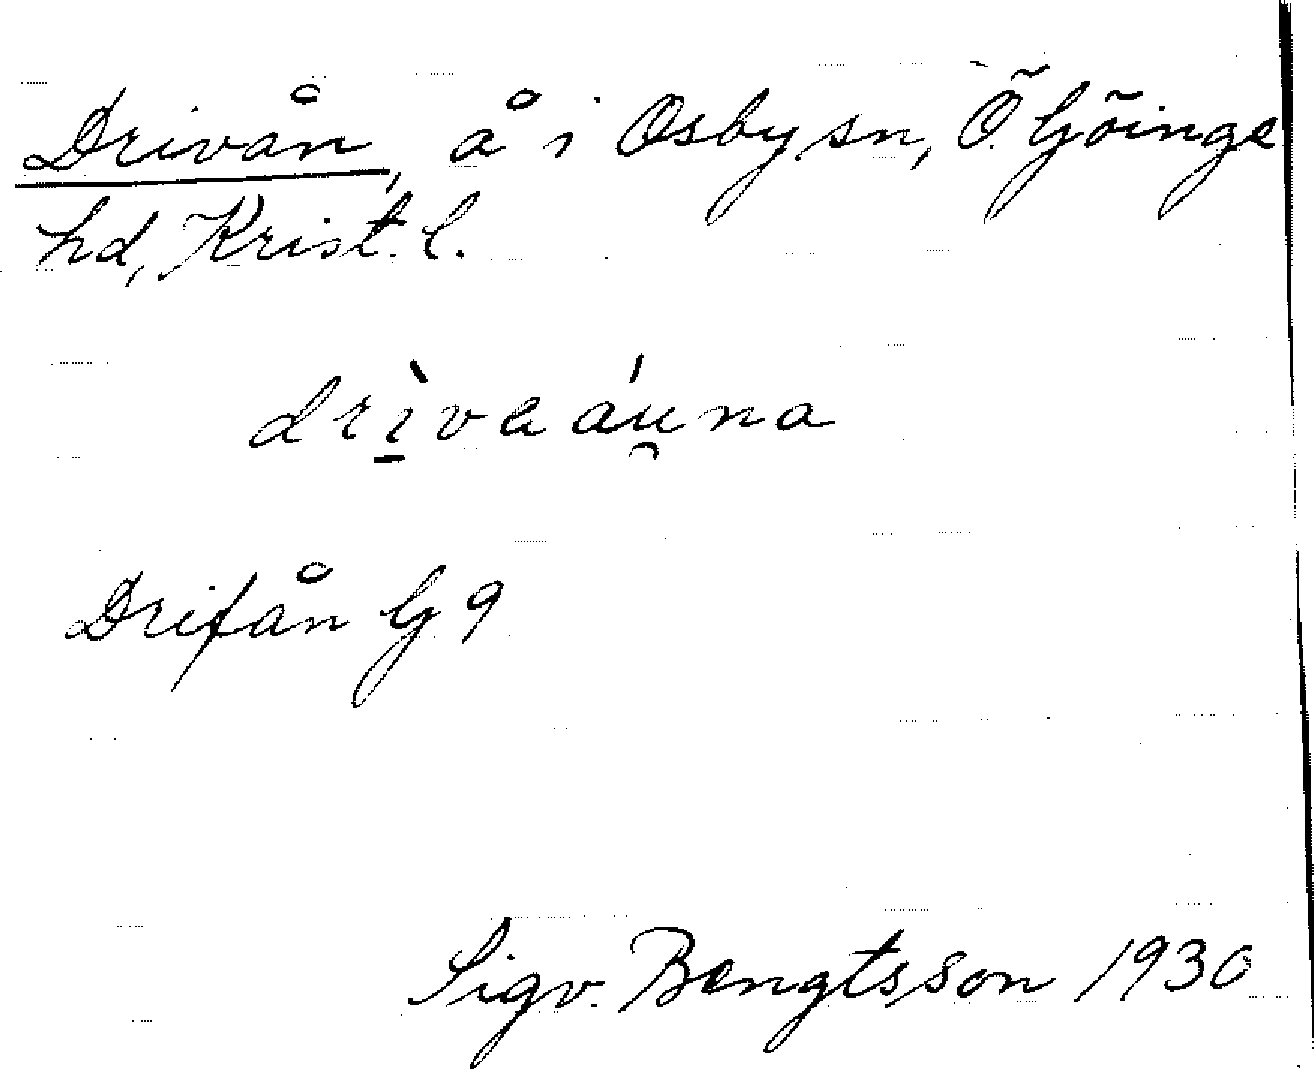 Drivån, å i Osby sn, Ö. Göinge
hd, Krist. l.
drì̱vaáu̯na
Drifån G 9
Sigv. Bengtsson 1930